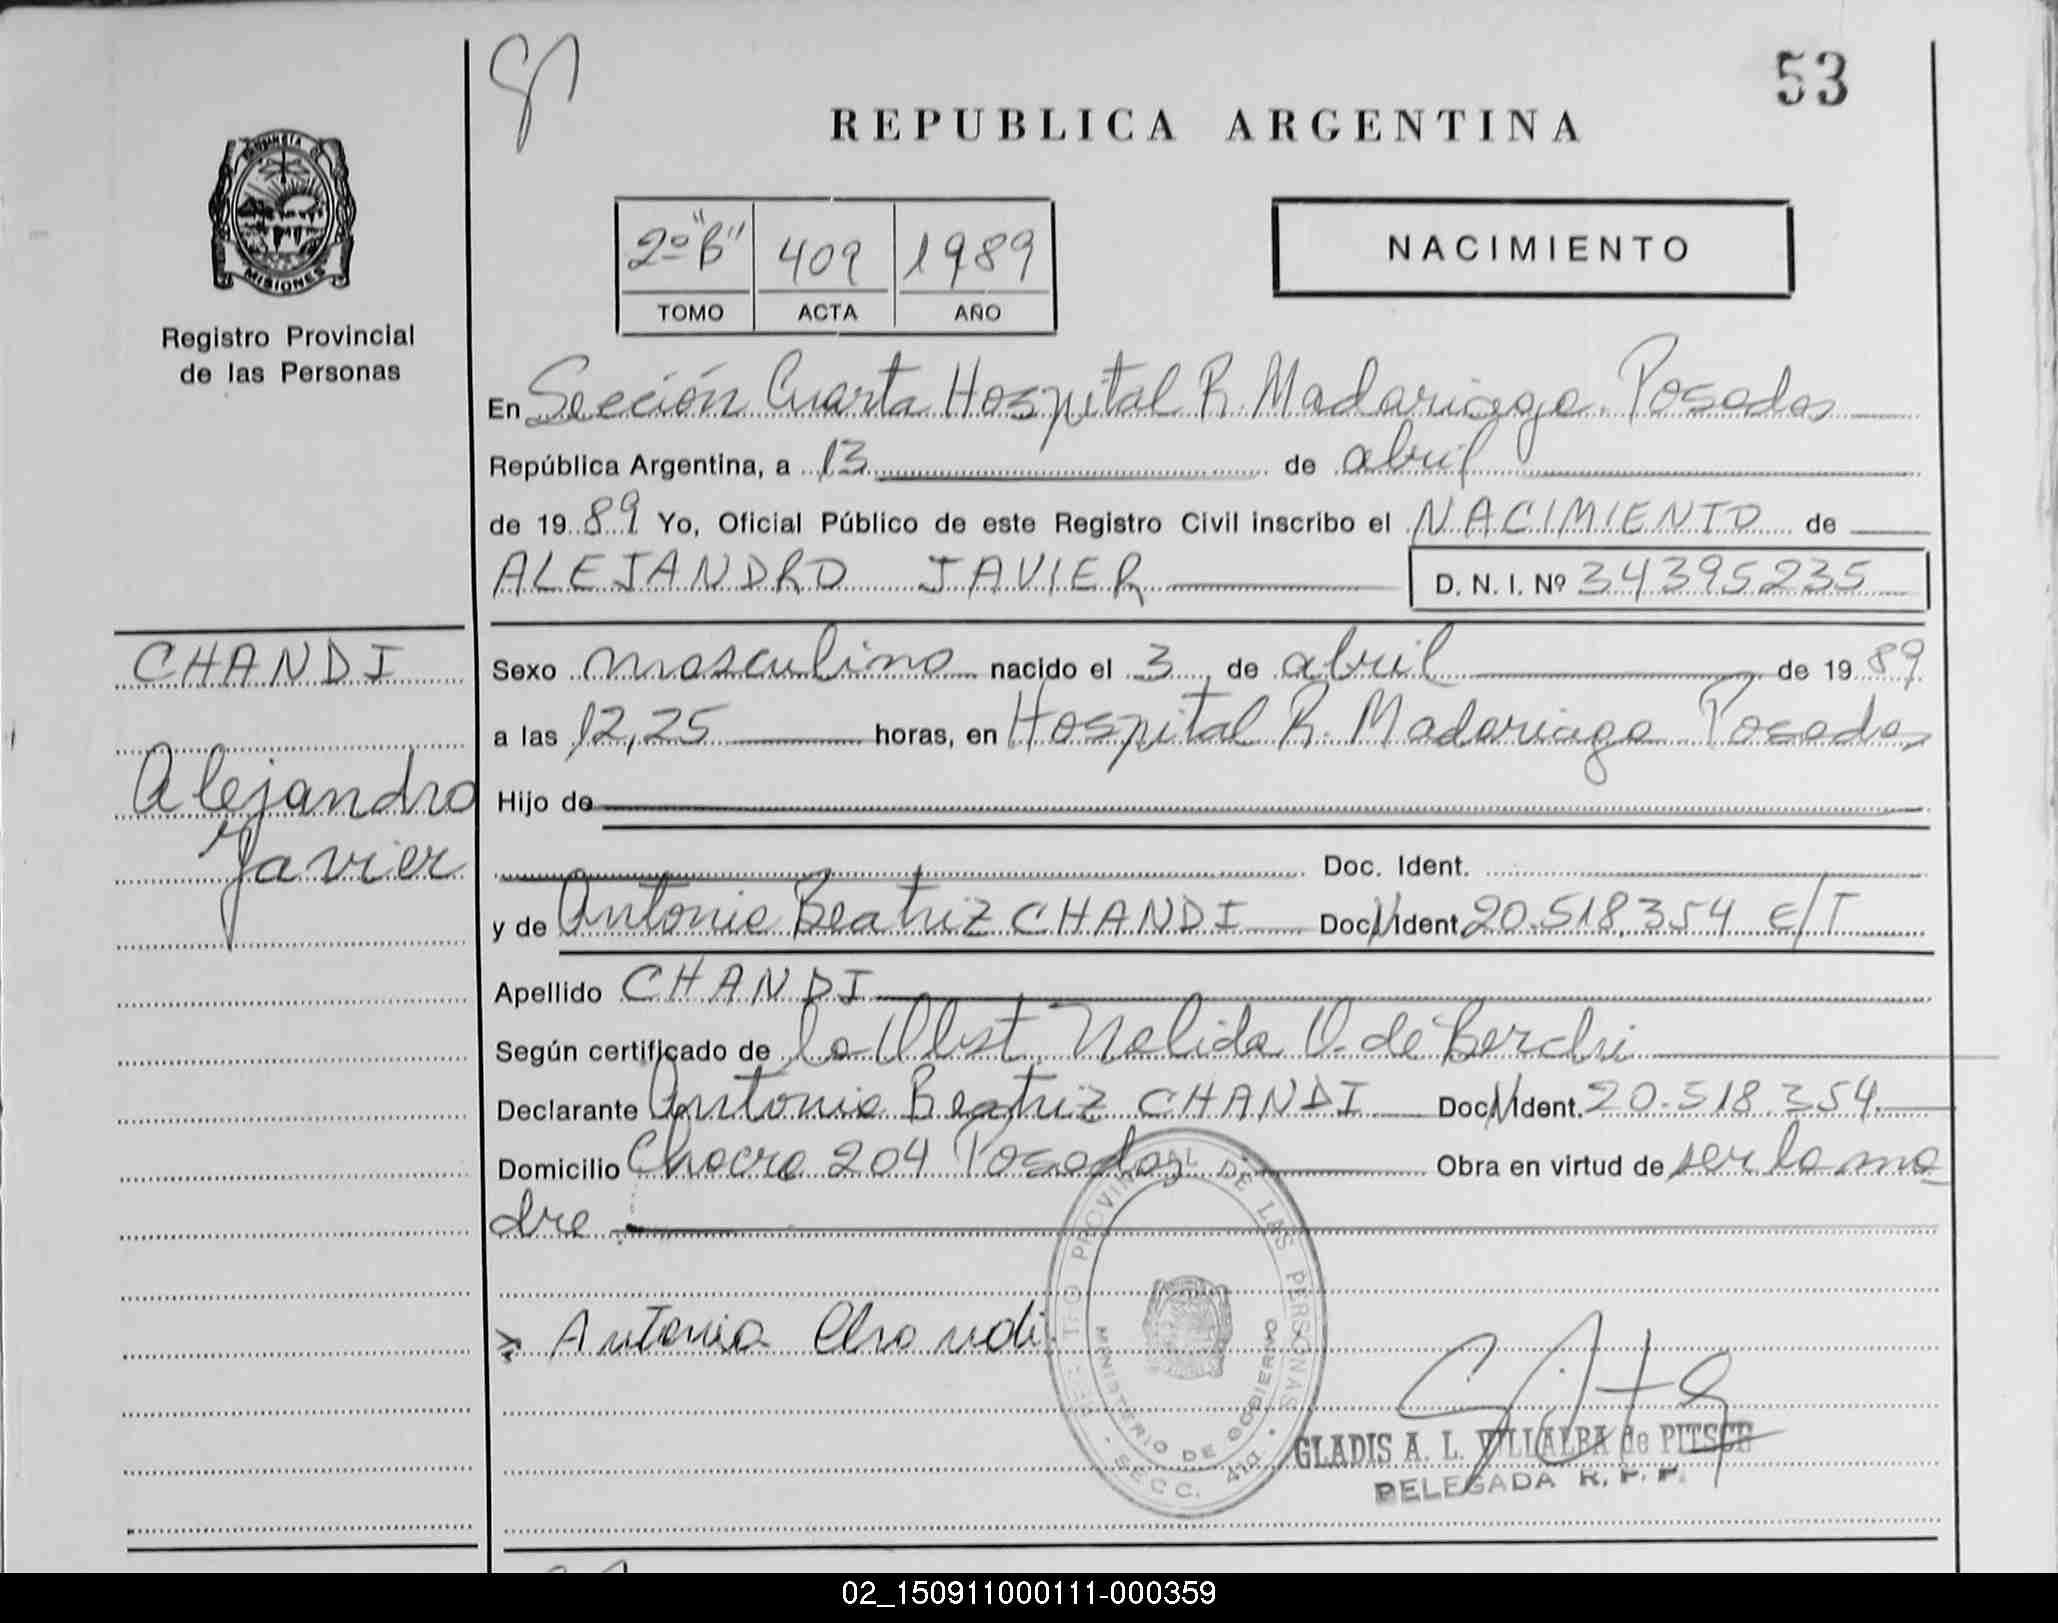 53
REPUBLICA ARGENTINA
PROVINCIA DE
MISIONES
Registro Provincial
de las Personas
2º "B" 409 1989
TOMO ACTA AÑO
NACIMIENTO
En Sección Cuarta Hospital R. Madariaga. Posadas
República Argentina, a 13 de abril
de 1989 Yo, Oficial Público de este Registro Civil inscribo el NACIMIENTO de
ALEJANDRO JAVIER D. N. I. Nº 34395235
CHANDI
Alejandro
Javier
Sexo masculino nacido el 3 de abril de 1989
a las 12,25 horas, en Hospital R. Madariaga Posadas
Hijo de
Doc. Ident.
y de Antonia Beatriz CHANDI Doc. N Ident. 20.518.354 E/T
Apellido CHANDI
Según certificado de la Obst. Nelida O. de Berchi
Declarante Antonia Beatriz CHANDI Doc. N Ident. 20.518.354
Domicilio Chacra 204 Posadas Obra en virtud de ser la ma
dre
Antonia Chandi
REGISTRO PROVINCIAL DE LAS PERSONAS
MINISTERIO DE GOBIERNO
SECC. 4ta
GLADIS A. L. VILLALBA de PITSCH
DELEGADA R. P. P.
02_150911000111-000359